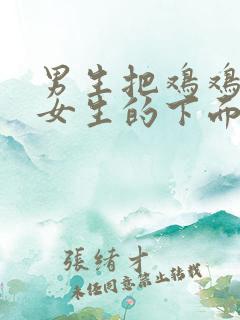 男生把鸡鸡
女生的下面
張緒才
未经同意禁止转载